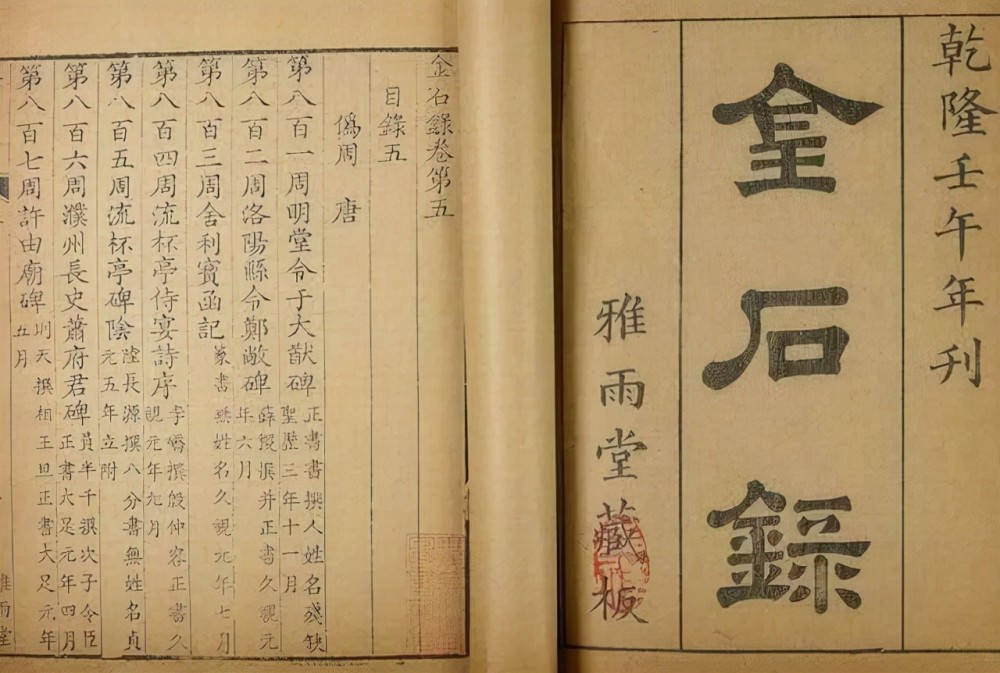 乾隆壬午年刊
金石錄
雅雨堂藏板
金石錄卷第五
目錄五
僞周 唐
第八百一周明堂令于大猷碑
正書書撰人姓名殘缺
聖歷三年十一月
第八百二周洛陽縣令鄭敞碑
薛稷撰并正書久視元
年六月
第八百三周舍利寶函記
篆書無姓名久視元年七月
第八百四周流杯亭侍宴詩序
李嶠撰殷仲容正書久
視元年九月
第八百五周流杯亭碑陰
陸長源撰八分書無姓名貞
元五年立附
第八百六周濮州長史蕭府君碑
員半千撰次子令臣
正書大足元年四月
第八百七周許由廟碑
則天撰相王旦正書大足元年
五月
雅雨堂